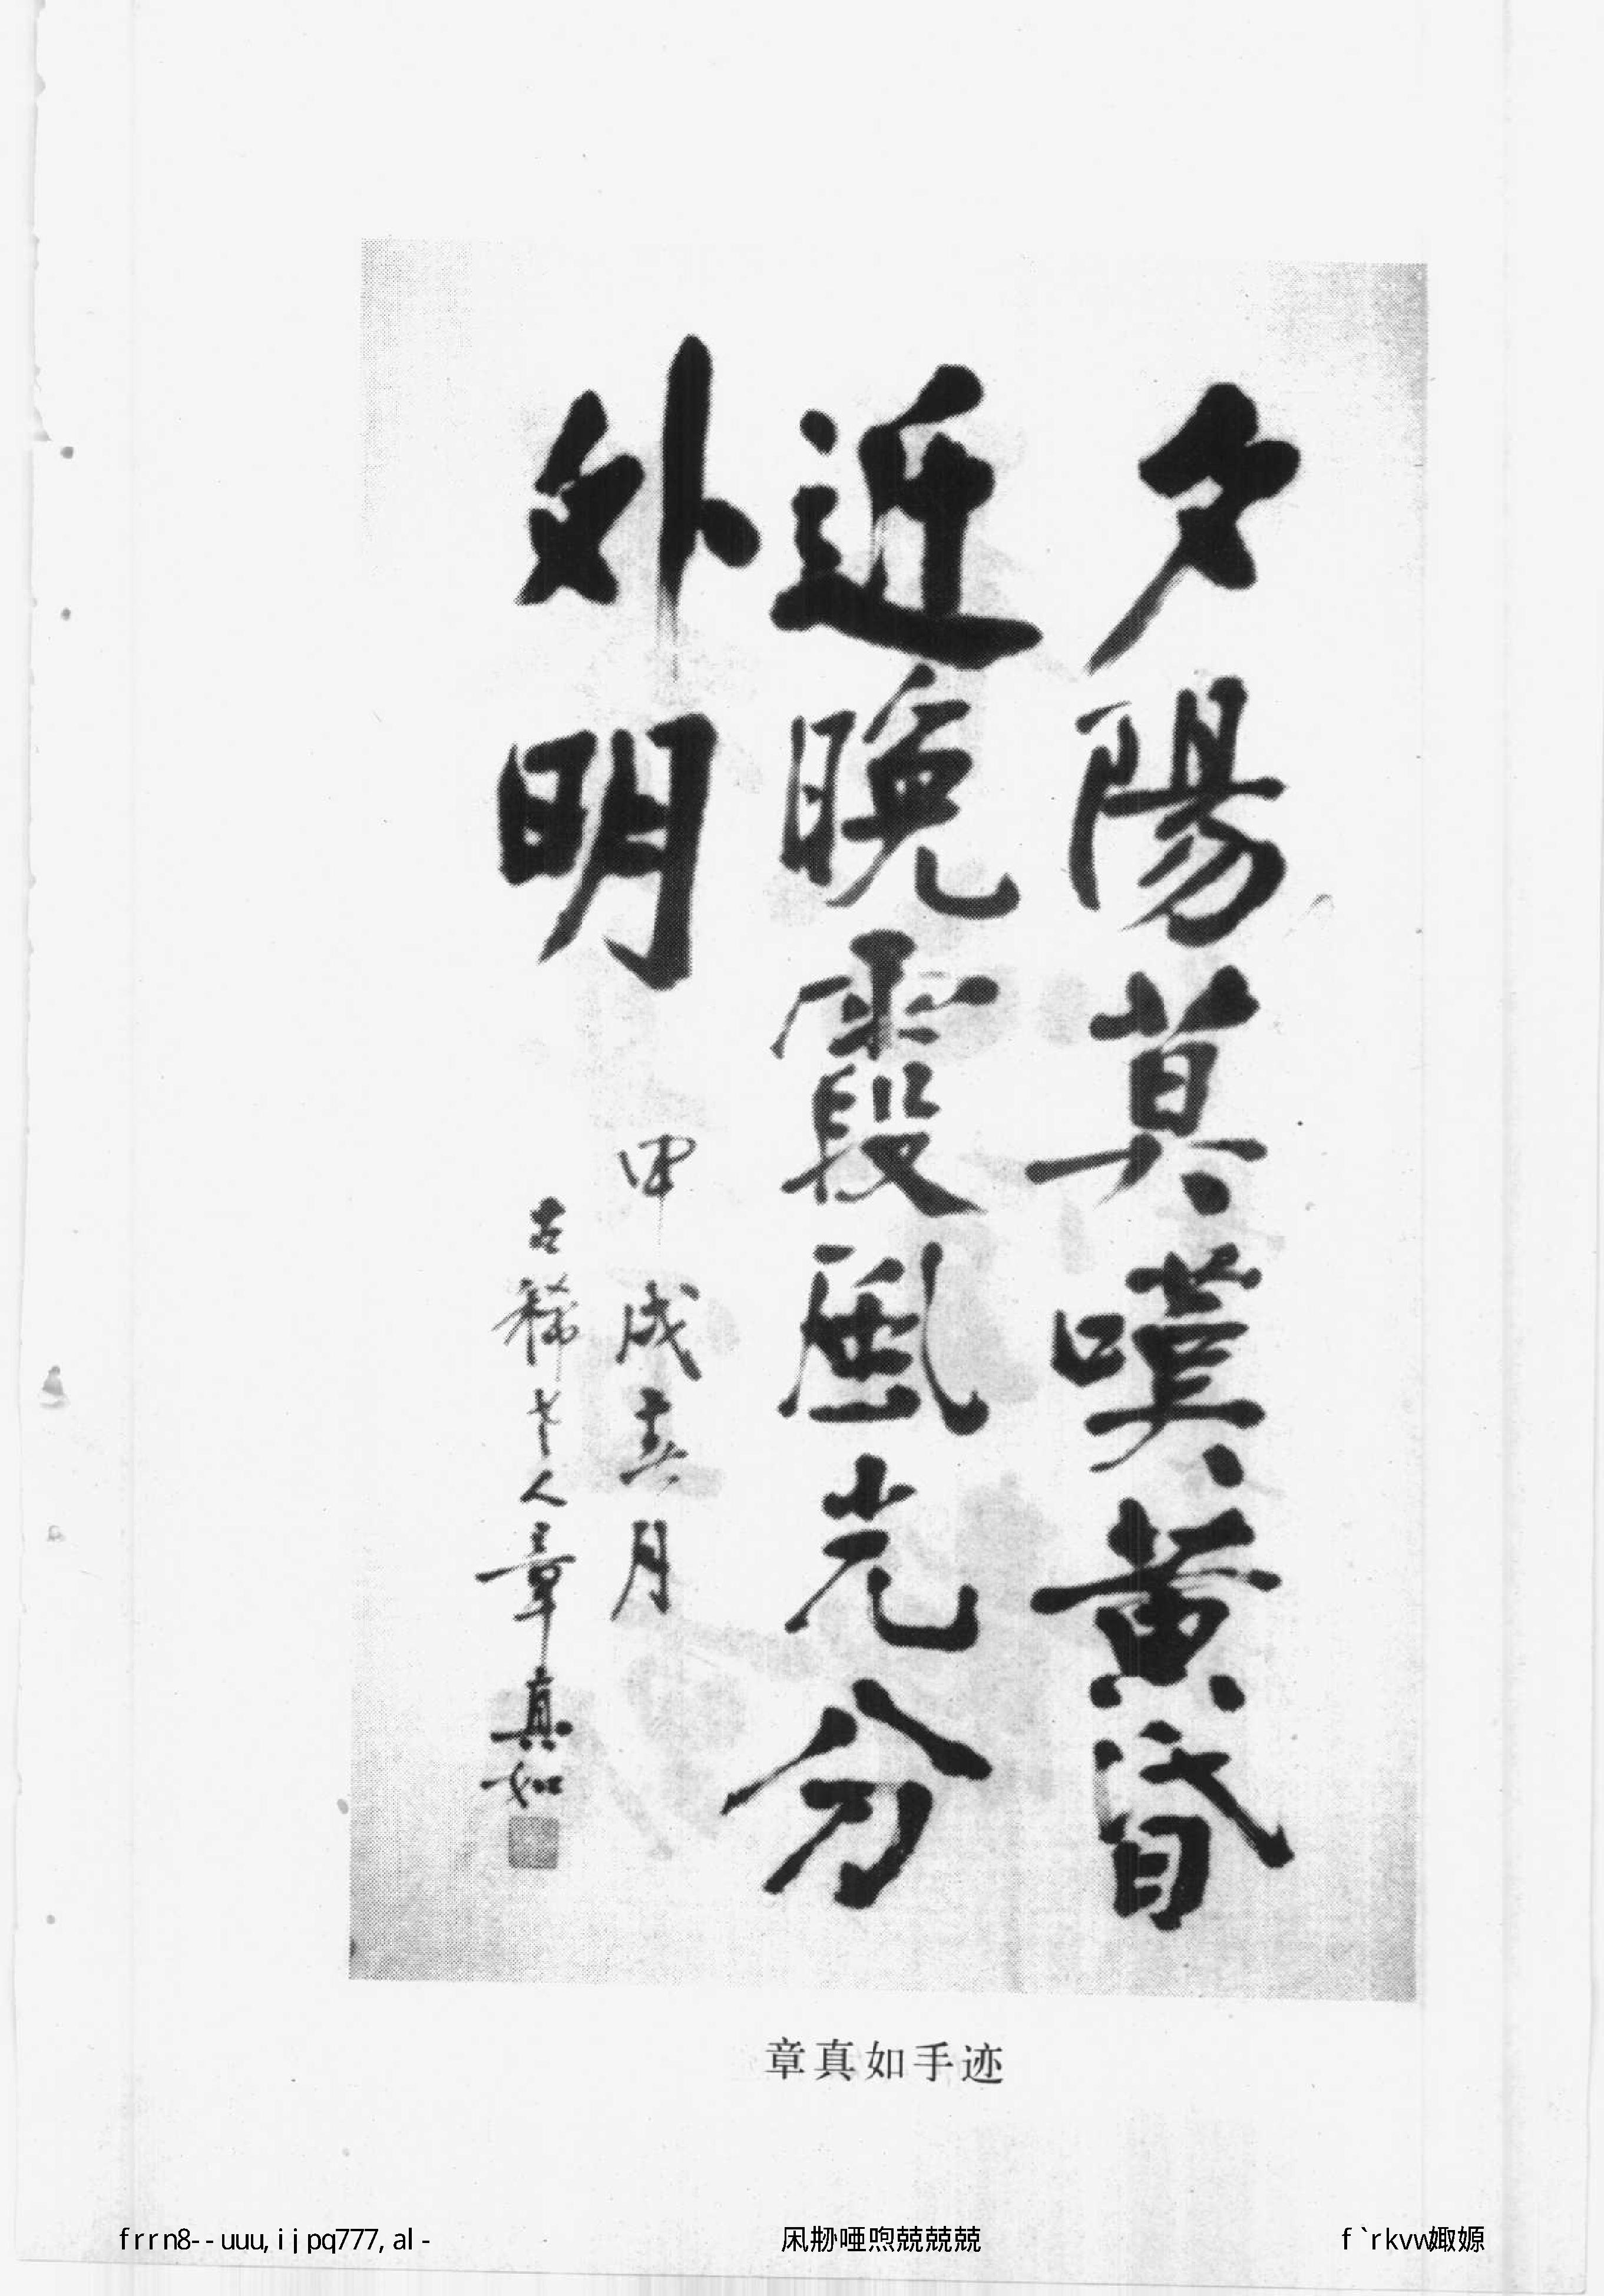 夕陽莫嘆黄昏
近晚霞風光分
外明
甲戌春月
古稀老人章真如
章真如手迹
frrn8--uuu,ijpq777,al-
f`rkvw娵嫄